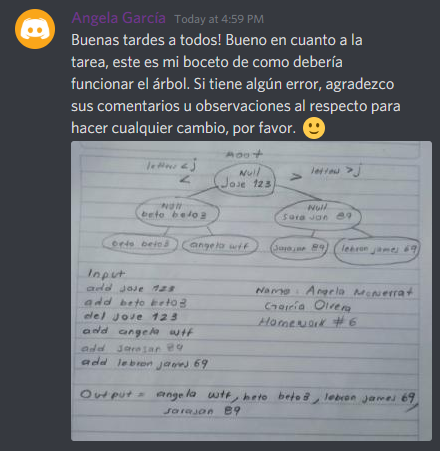 Angela García Today at 4:59 PM
Buenas tardes a todos! Bueno en cuanto a la
tarea, este es mi boceto de como debería
funcionar el árbol. Si tiene algún error, agradezco
sus comentarios u observaciones al respecto para
hacer cualquier cambio, por favor.
Root
letra < j
<
Null
Jose 123
> letra > j
Null
beto beto3
Null
Sarajan 89
beto beto3
angela wtf
Sarajan 89
lebron james 69
Input
add Jose 123
add beto beto3
del Jose 123
add angela wtf
add Sarajan 89
add lebron james 69
Name: Angela Monserrat
García Olvera
Homework #6
Output = angela wtf, beto beto3, lebron james 69,
Sarajan 89